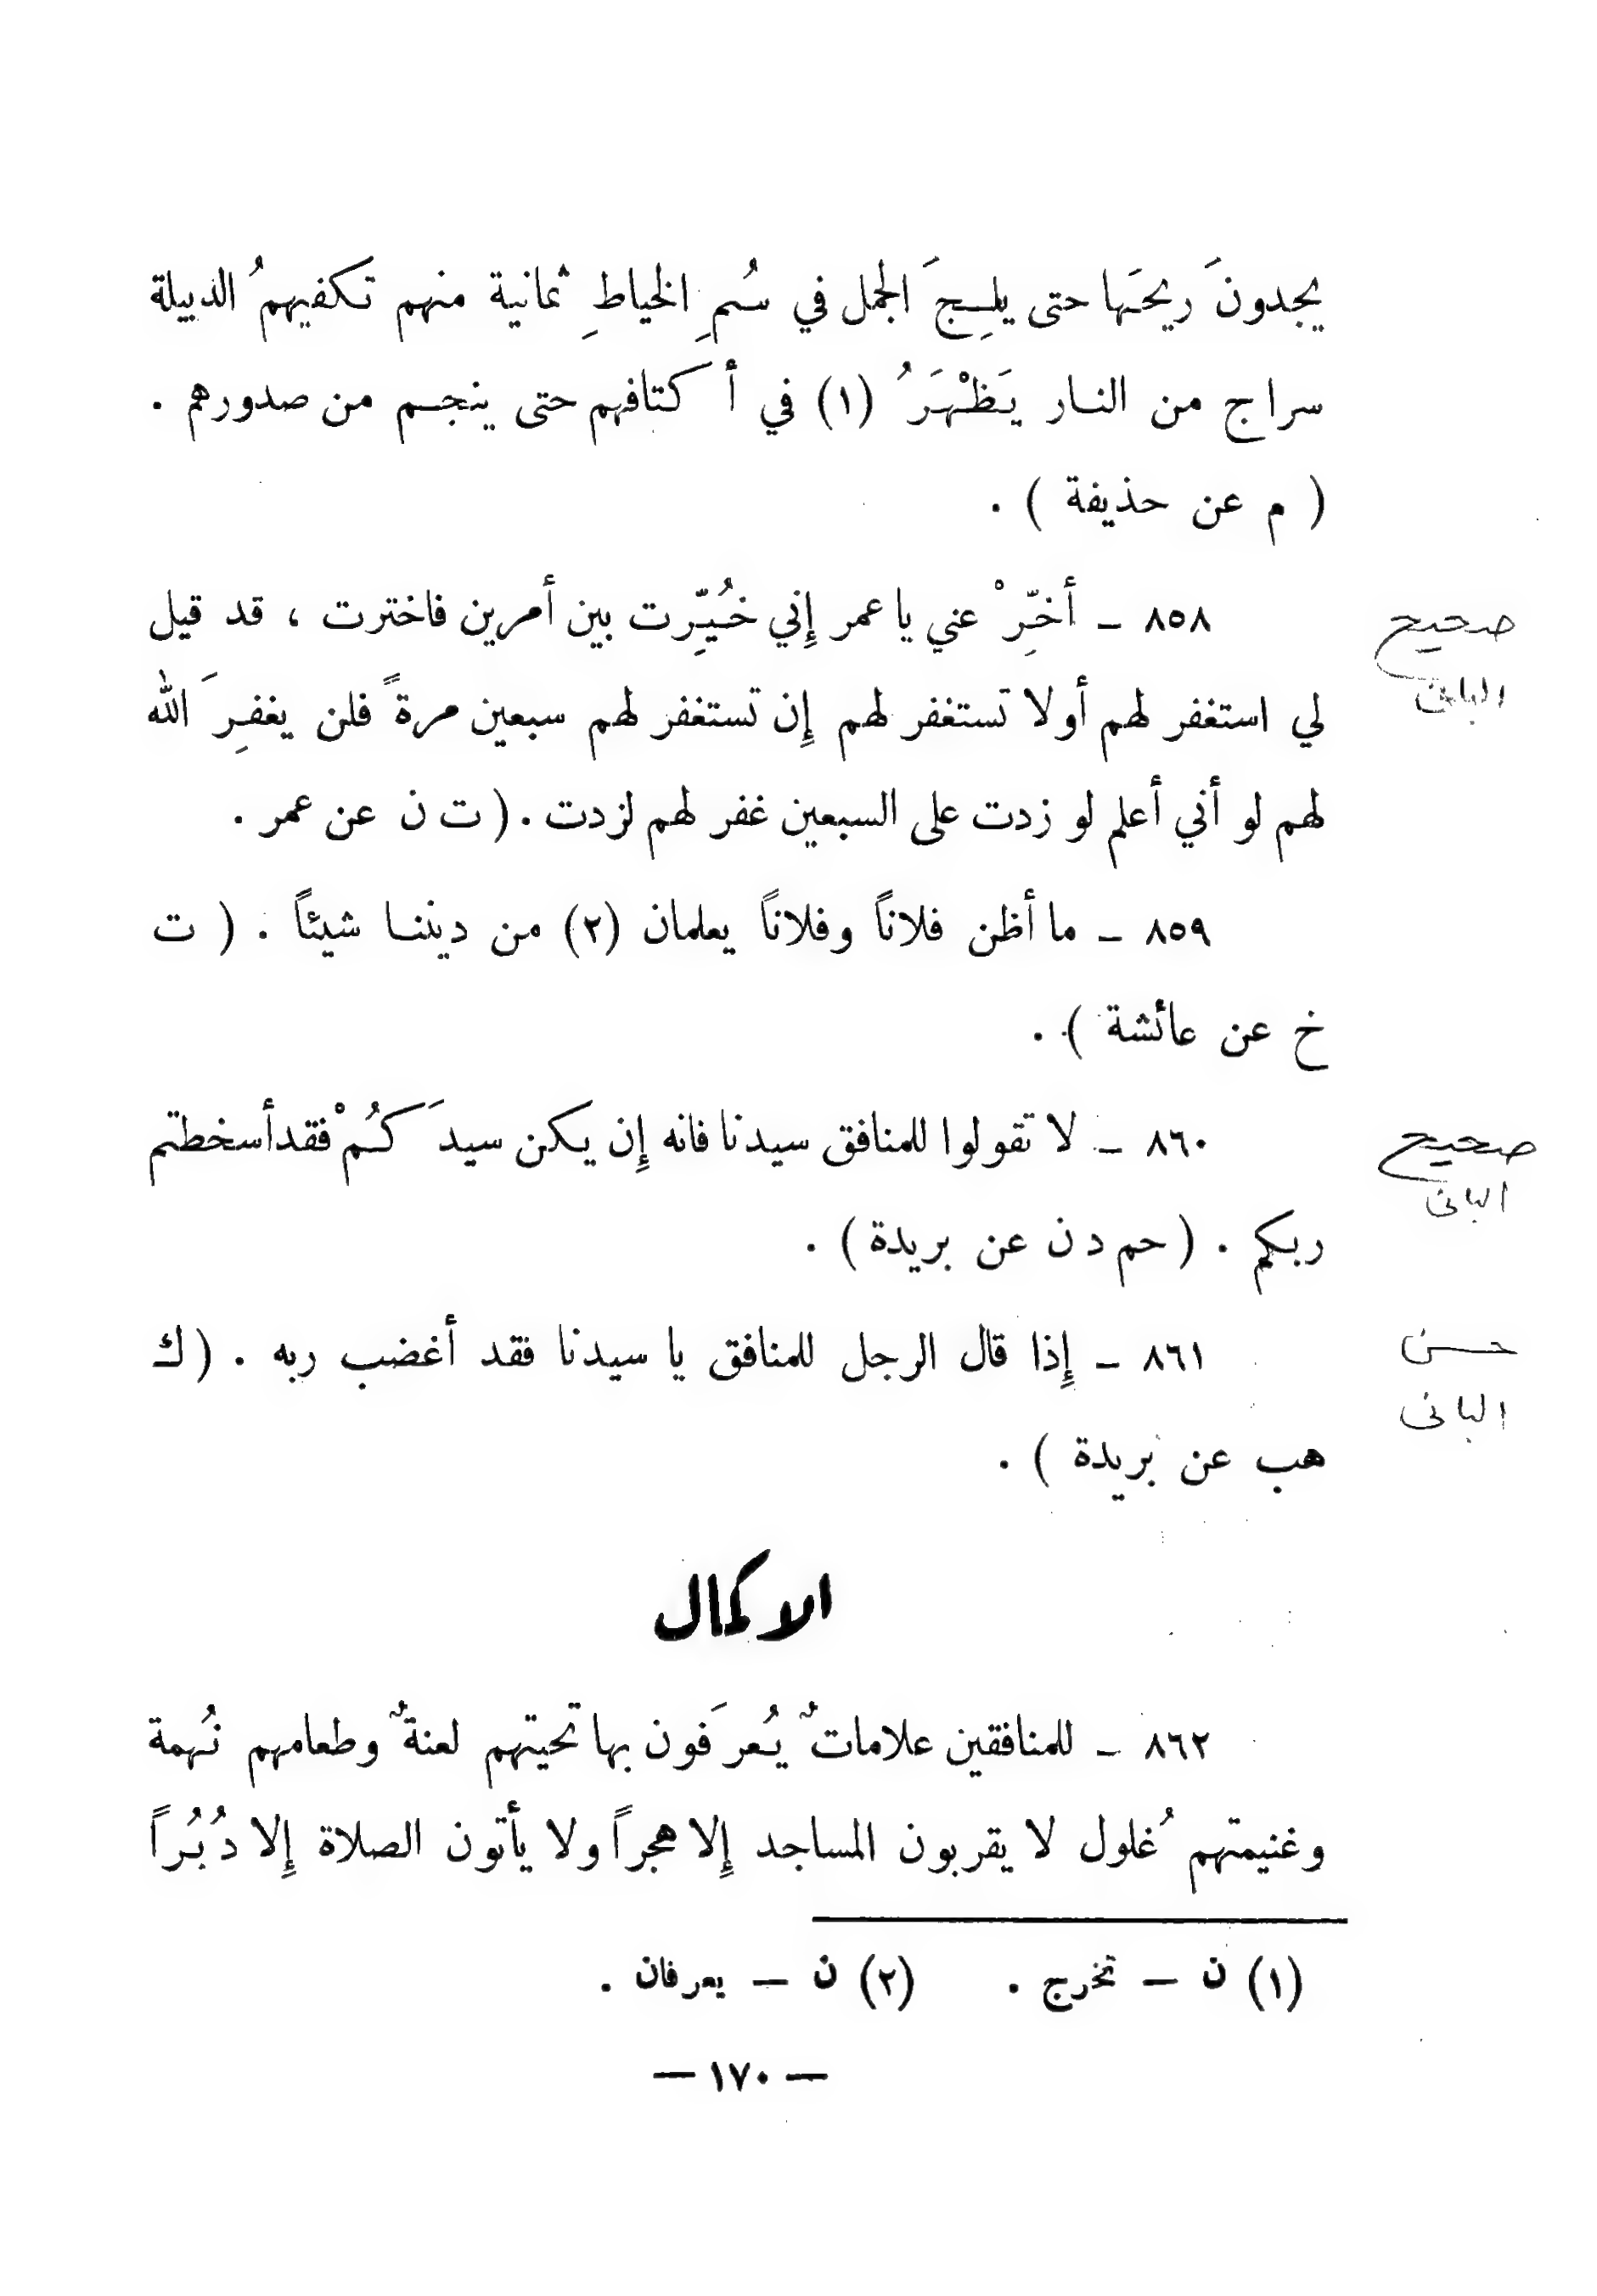 يجدونَ ريحَها حتى يلِجَ الجمل في سُمِ الخياطِ ثمانية منهم تكفيهمُ الدبيلة
سراج من النار يَظْهَرُ (١) في أكتافهم حتى ينجم من صدورهم .
( م عن حذيفة ) .
٨٥٨ – أخِّرْ عني يا عمر إِني خُيِّرت بين أمرين فاخترت ، قد قيل
صحيح
لي استغفر لهم أولا تستغفر لهم إِن تستغفر لهم سبعين مرةً فلن يغفرَِ الله
البانى
لهم لو أني أعلم لو زدت على السبعين غفر لهم لزدت . ( ت ن عن عمر .
٨٥٩ – ما أظن فلاناً وفلاناً يعلمان (٢) من ديننا شيئاً . ( ت
خ عن عائشة ) .
٨٦٠ – لا تقولوا للمنافق سيدنا فانه إِن يكن سيدَكُمْ فقد أسخطتم
صحيح
البانى
ربكم . ( حم د ن عن بريدة ) .
٨٦١ – إِذا قال الرجل للمنافق يا سيدنا فقد أغضب ربه . ( ك
حسن
البانى
هب عن بريدة ) .
الاكمال
٨٦٢ – للمنافقين علاماتٌ يُعرَفون بها تحيتهم لعنةٌ وطعامهم نُهمة
وغنيمتهم غُلول لا يقربون المساجد إِلا هجراً ولا يأتون الصلاة إِلا دُبُراً
(١) ن — تخرج . (٢) ن — يعرفان .
— ١٧٠ —